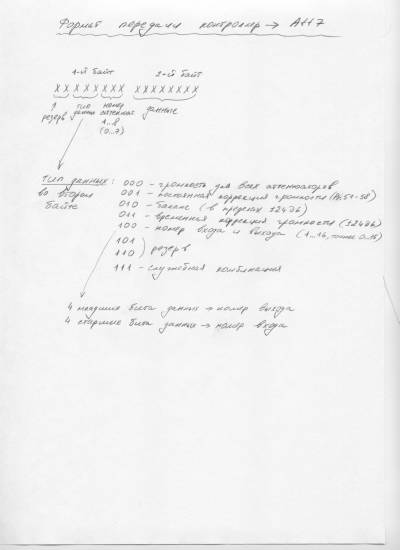 Формат передачи контроллер → Att7
1-й байт 2-й байт
X X X X X X X X X X X X X X X X
1 тип номер данные
резерв данных аттенюат.
1..8
(0..7)
Тип данных : 000 – громкость для всех аттенюаторов
во втором 001 – постоянная коррекция громкости
байте 010 – баланс (в пределах ±24дб)
011 – временная коррекция громкости (±24дб)
100 – номер входа и выхода (1..16, 0..15)
101
110 ) резерв
111 – служебная комбинация
4 младших бита данных → номер выхода
4 старшие бита данных → номер входа